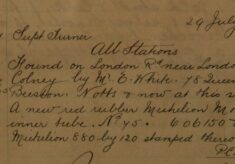 29 July
Supt Turner
All Stations
Found on London Rd near London
Colney by Mr E. White. 78 Queen
Beeston. Notts & now at this s
A new red rubber Michelin M
inner tube. No 45. 606150
Michelin 880 by 120 stamped thereo
P.C.